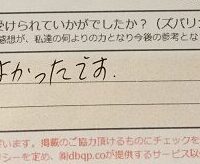 受けられていかがでしたか？（ズバリ
感想が、私達の何よりの力となり今後の参考とな
よかったです.
います。掲載のご協力頂けるものにチェックを
シーを定め、㈱dbqp.coが提供するサービス以